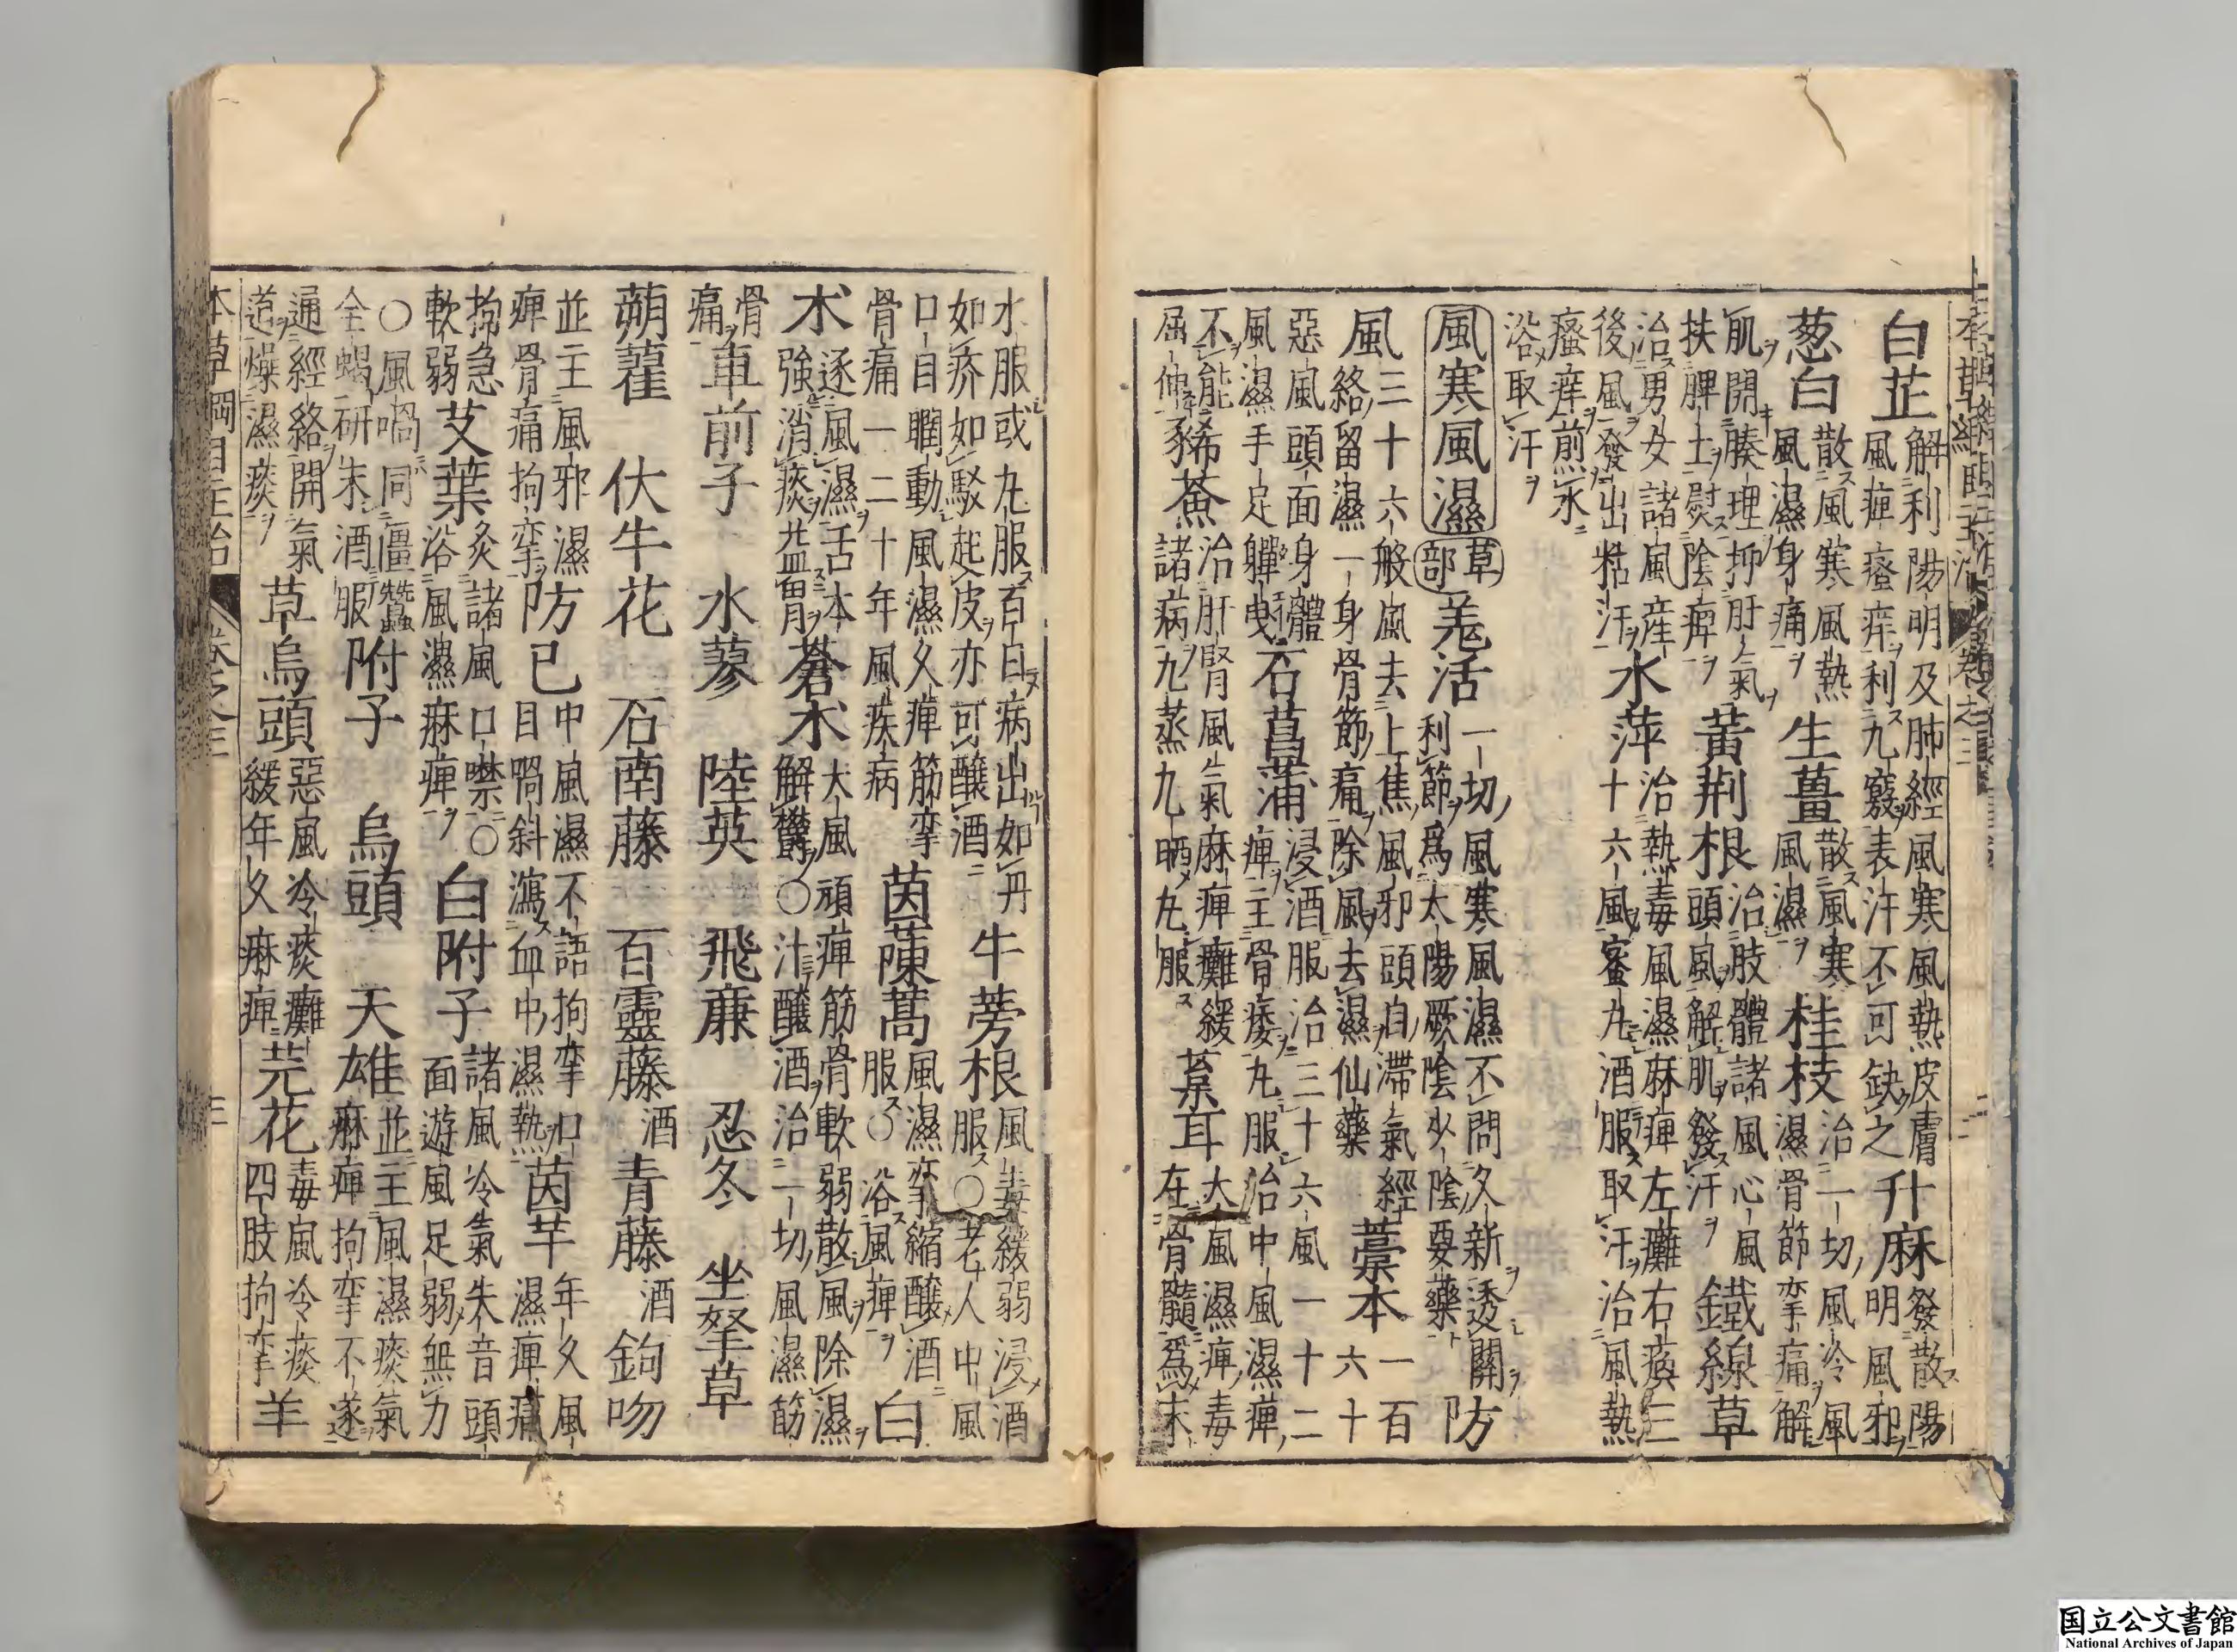 白芷解利陽明及肺經風寒風熱皮膚風痺瘙痒利九竅表汗不可缺之升麻發散陽明風邪
葱白散風寒風熱風濕身痛生薑散風寒風濕桂枝治一切風冷風濕骨節攣痛解
肌開腠理抑肝氣扶脾土熨陰痺黄荆根治肢體諸風心風頭風解肌發汗鐵線草
治男女諸風產後風發出粘汗水萍治熱毒風濕麻痺左癱右瘓三十六風蜜丸酒服取汗治風熱
瘙痒煎水浴取汗
風寒風濕草部羗活一切風寒風濕不問久新透關利節爲太陽厥陰少陰要藥防
風三十六般風去上焦風邪頭目滯氣經絡留濕一身骨節痛除風去濕仙藥藁本一百六十
惡風頭面身體風濕手足軃曳石菖蒲浸酒服治三十六風一十二痺主骨痿丸服治中風濕痺
不能屈伸豨薟治肝腎風氣麻痺癱緩諸病九蒸九晒丸服葈耳大風濕痺毒在骨髓爲末
水服或丸服百日病出如丹如疥如駁起皮亦可釀酒牛蒡根風毒緩弱浸酒服○老人中風
口目瞤動風濕久痺筋攣骨痛一二十年風疾病茵蔯蒿風濕攣縮釀酒服○浴風痺白
术逐風濕舌本強消痰益胃蒼术大風頑痺筋骨軟弱散風除濕解鬱○汁釀酒治一切風濕筋
骨痛車前子 水蓼 陸英 飛廉 忍冬 坐拏草
蒴藋 伏牛花 石南藤 百靈藤酒青藤酒鉤吻
並主風邪濕痺骨痛拘攣防已中風濕不語拘攣口目喎斜瀉血中濕熱茵芋年久風濕痺痛
拘急軟弱艾葉灸諸風口噤○浴風濕麻痺白附子諸風冷氣失音頭面遊風足弱無力
○風喎同僵蠶全蝎研末酒服附子 烏頭 天雄並主風濕痰氣麻痺拘攣不遂
通經絡開氣道燥濕痰草烏頭惡風冷痰癱緩年久麻痺芫花毒風冷痰四肢拘攣羊
本草綱目主治 卷之三 三
国立公文書館
National Archives of Japan